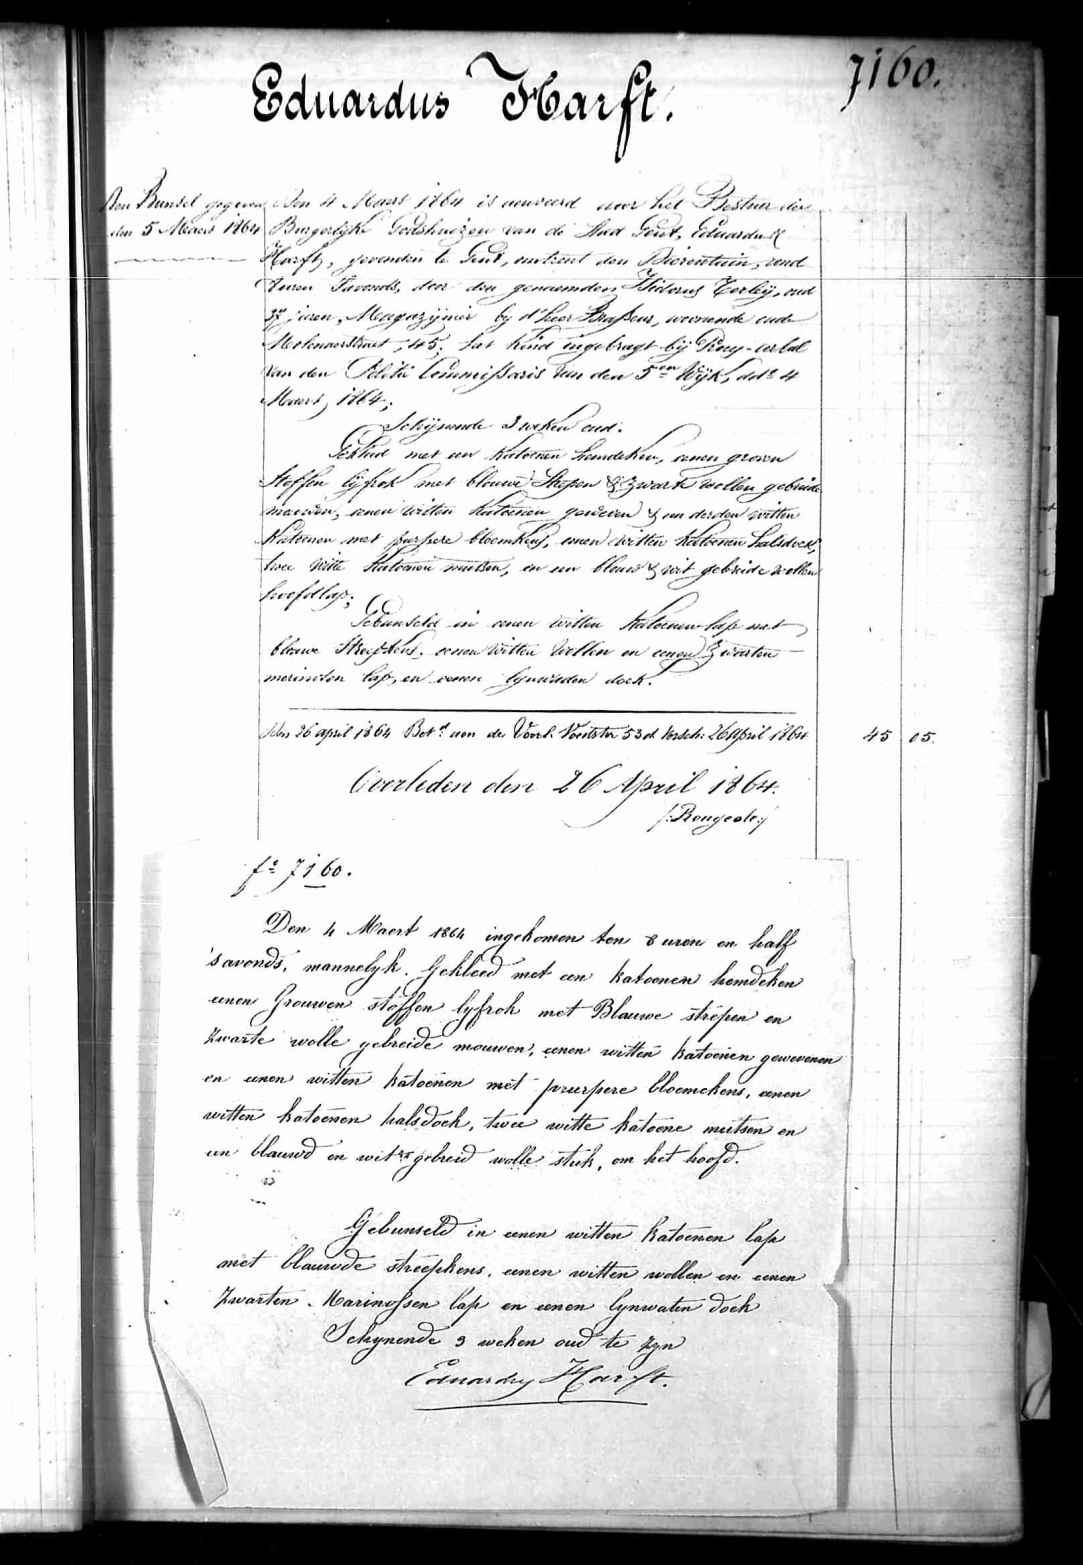 7160.
Eduardus Harft.
Den Bunsel gegeven
den 5 Maert 1864
Den 4 Maert 1864 is aenveerd door het Bestuer der
Burgerlyke Godshuizen van de Stad Gent, Eduardus
Harft, gevonden te Gent, omtrent den Dierentuin, rond
8 uren s'avonds, door den genaemden Isidorus, oud
37 jaren, Magazynier by d'heer Brasseur, woonende oude
Molenaerstraet, 45, het kind ingebragt by Proces-verbal
van den Politie Commissaris van den 5en Wyk, ddo 4
Maert, 1864;
Schynende 3 weken oud.
Gekleed met een katoenen hemdeken, eenen grouwen
stoffen lyfrok met blauwe strepen & zwarte wollen gebreide
mouwen, eenen witten katoenen geweven & een derden witten
katoenen met purpere bloemkens, eenen witten katoenen halsdoek,
twee witte katoenen mutsen, en een blauw & wit gebreide wollen
hoofdlap;
Gebunseld in eenen witten katoenen lap met
blauwe streepkens, eenen witten wollen en eenen zwarten
merinossen lap, en eenen lynwaden doek.
Den 26 april 1864 Bet.d aen de Voorl. Voedster 53 d versch. 26 April 1864 45 05.
Overleden den 26 April 1864.
fo 7160.
Den 4 Maert 1864 ingekomen ten 8 uren en half
's avonds, mannelyk. Gekleed met een katoenen hemdeken
eenen Grouwen stoffen lyfrok met Blauwe strepen en
zwarte wolle gebreide mouwen, eenen witten katoenen gewevenen
en eenen witten katoenen met purpere bloemekens, eenen
witten katoenen halsdoek, twee witte katoene mutsen en
een blauwd en wit gebreid wolle stuk, om het hoofd.
Gebunseld in eenen witten katoenen lap
met blauwde streepkens, eenen witten wollen en eenen
zwarten Marinossen lap en eenen lynwaten doek
Schynende 3 weken oud te zyn
Eduardus Harft.